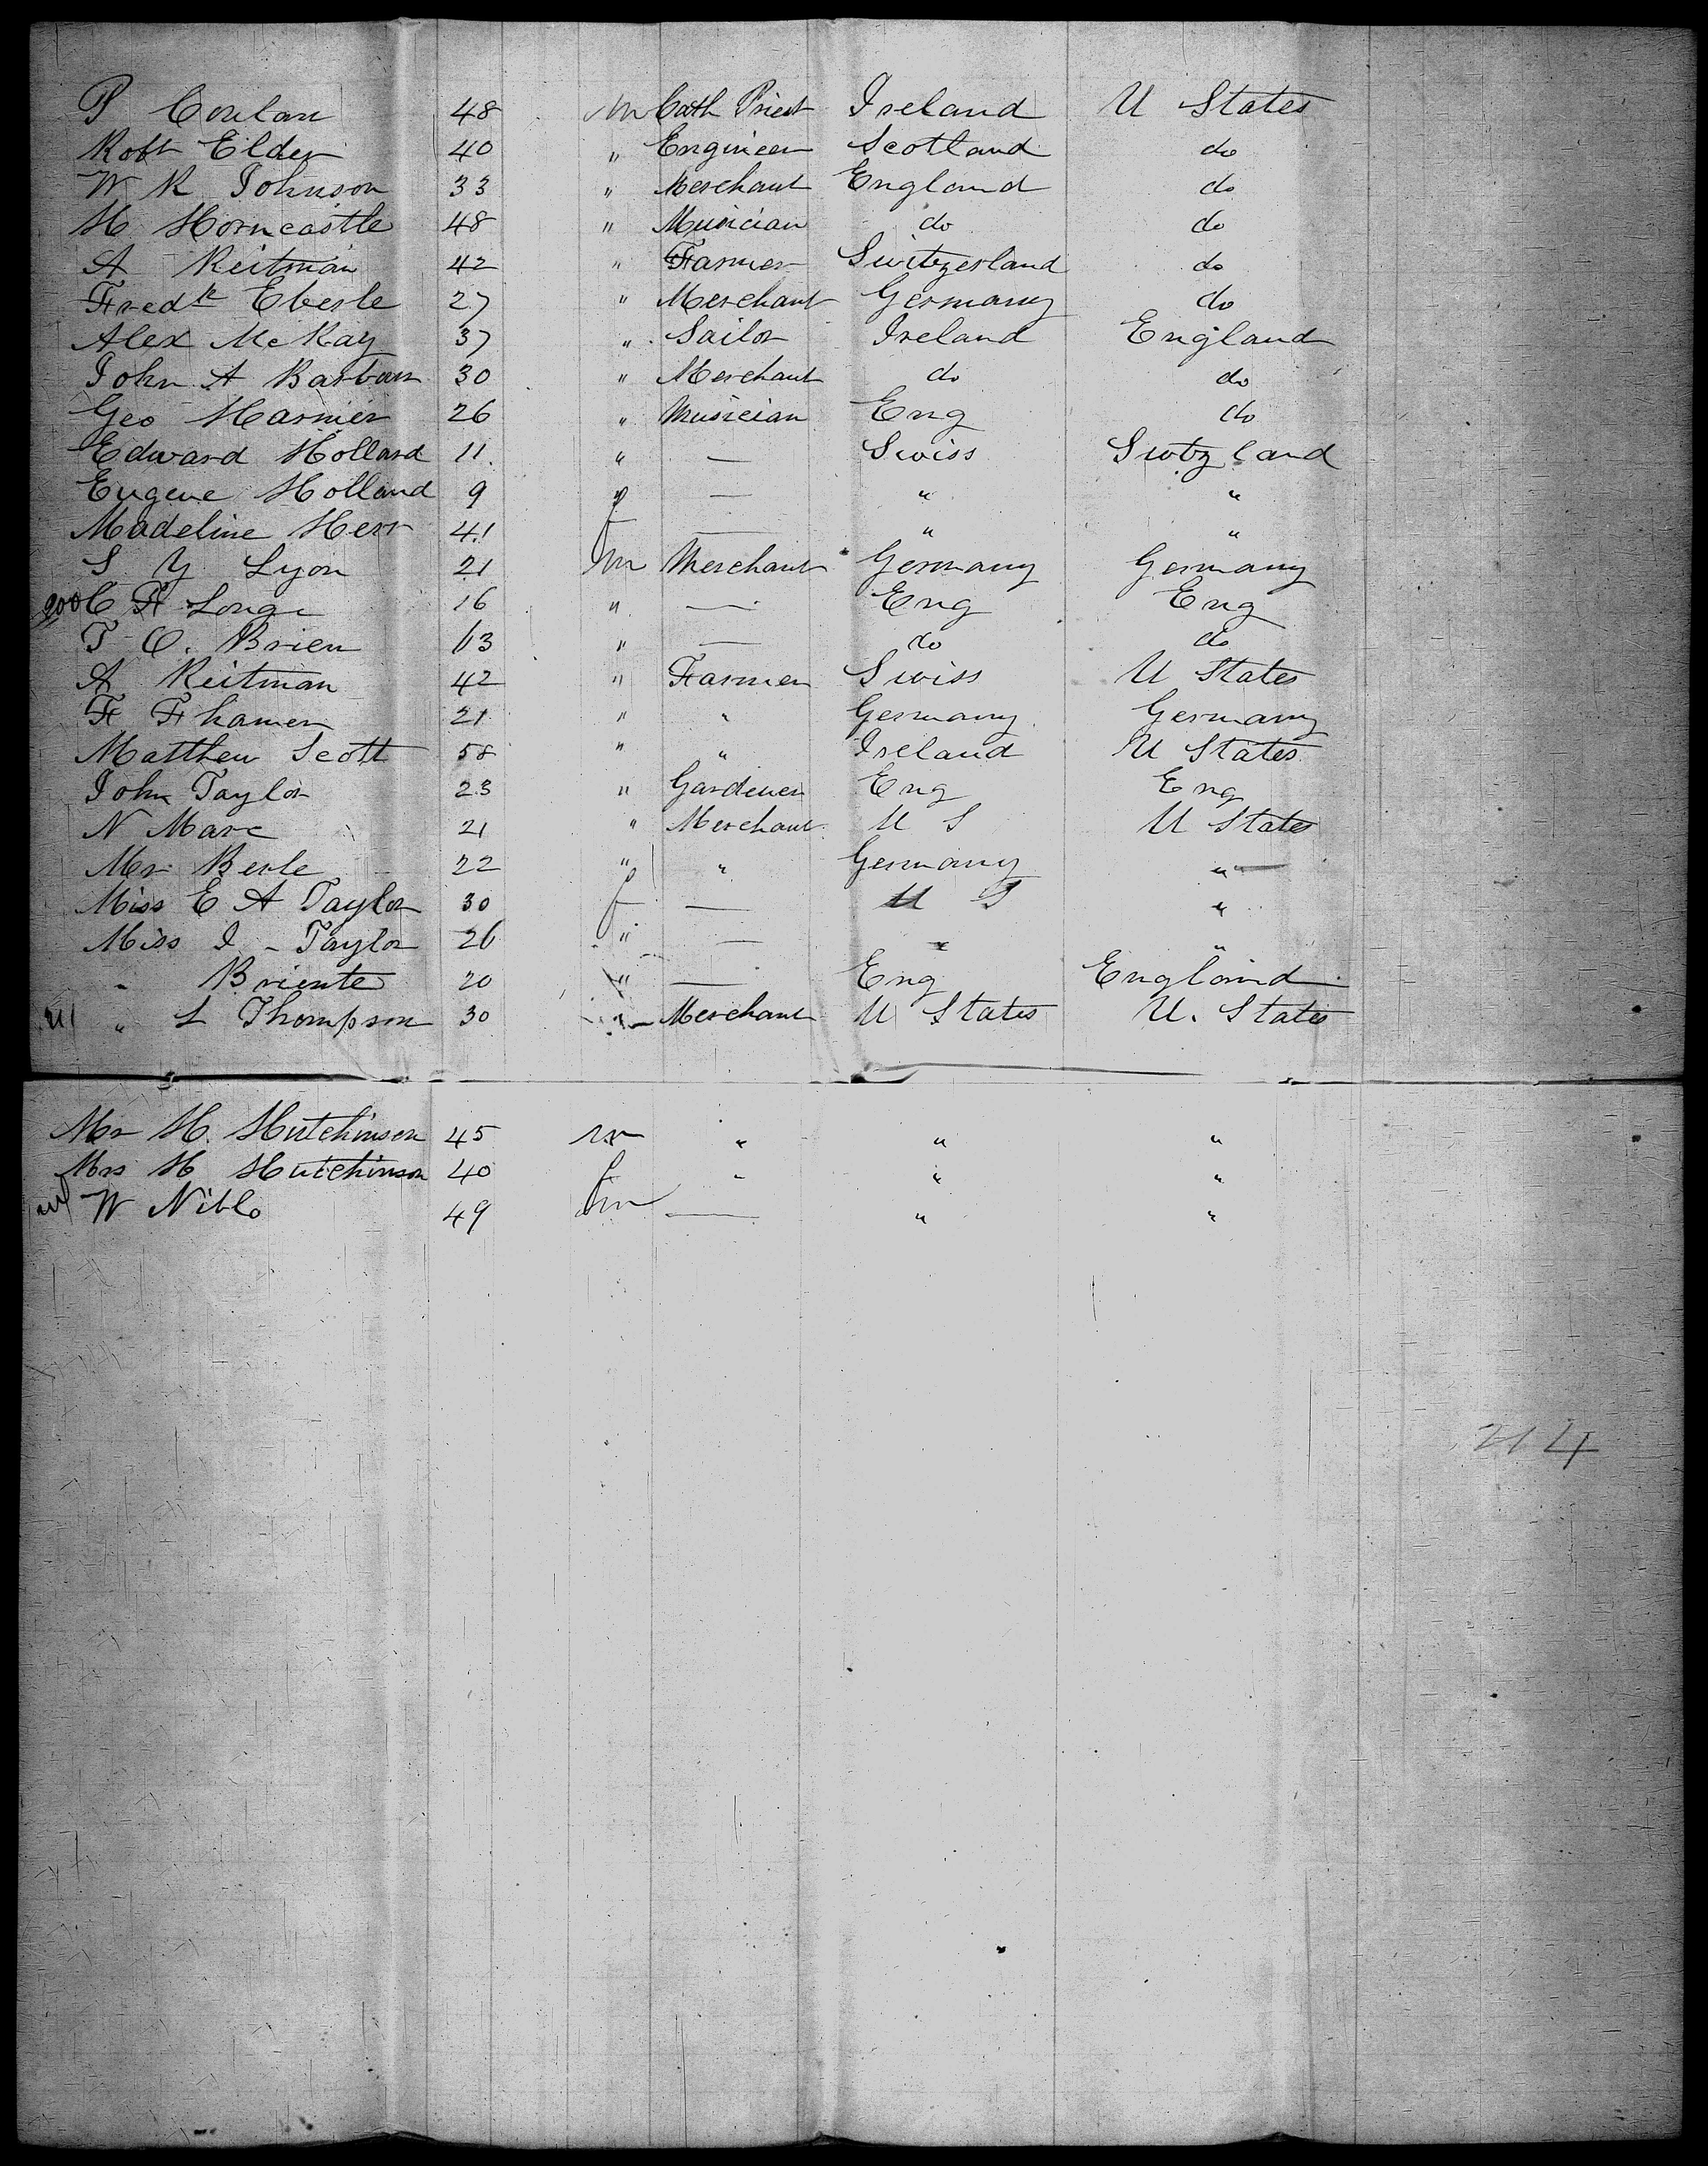 P Conlan 48 m Cath Priest Ireland U States
Robt Elder 40 " Engineer Scotland do
W R Johnson 33 " Merchant England do
H Horncastle 48 " Musician do do
A Reitman 42 " Farmer Switzerland do
Fredk Eberle 27 " Merchant Germany do
Alex McKay 37 " Sailor Ireland England
John A Barbour 30 " Merchant do do
Geo Harmer 26 " Musician Eng do
Edward Hollard 11 " — Swiss Switzland
Eugene Holland 9 " — " "
Madeline Herr 41 f — " "
S Y Lyon 21 m Merchant Germany Germany
200 C F Longe 16 " — Eng Eng
T O. Brien 13 " — do do
A Reitman 42 " Farmer Swiss U States
F Fhamer 21 " " Germany Germany
Matthew Scott 58 " " Ireland U States
John Taylor 23 " Gardener Eng Eng
N Marc 21 " Merchant U S U States
Mr Berle 22 " " Germany "
Miss E A Taylor 30 f — U S "
Miss I - Taylor 26 " — " "
" Briente 20 " — Eng England
211 " L Thompson 30 Merchant U States U. States
Mr H. Hutchinson 45 m " " "
Mrs H Hutchinson 40 f " " "
W Niblo 49 m — " "
214